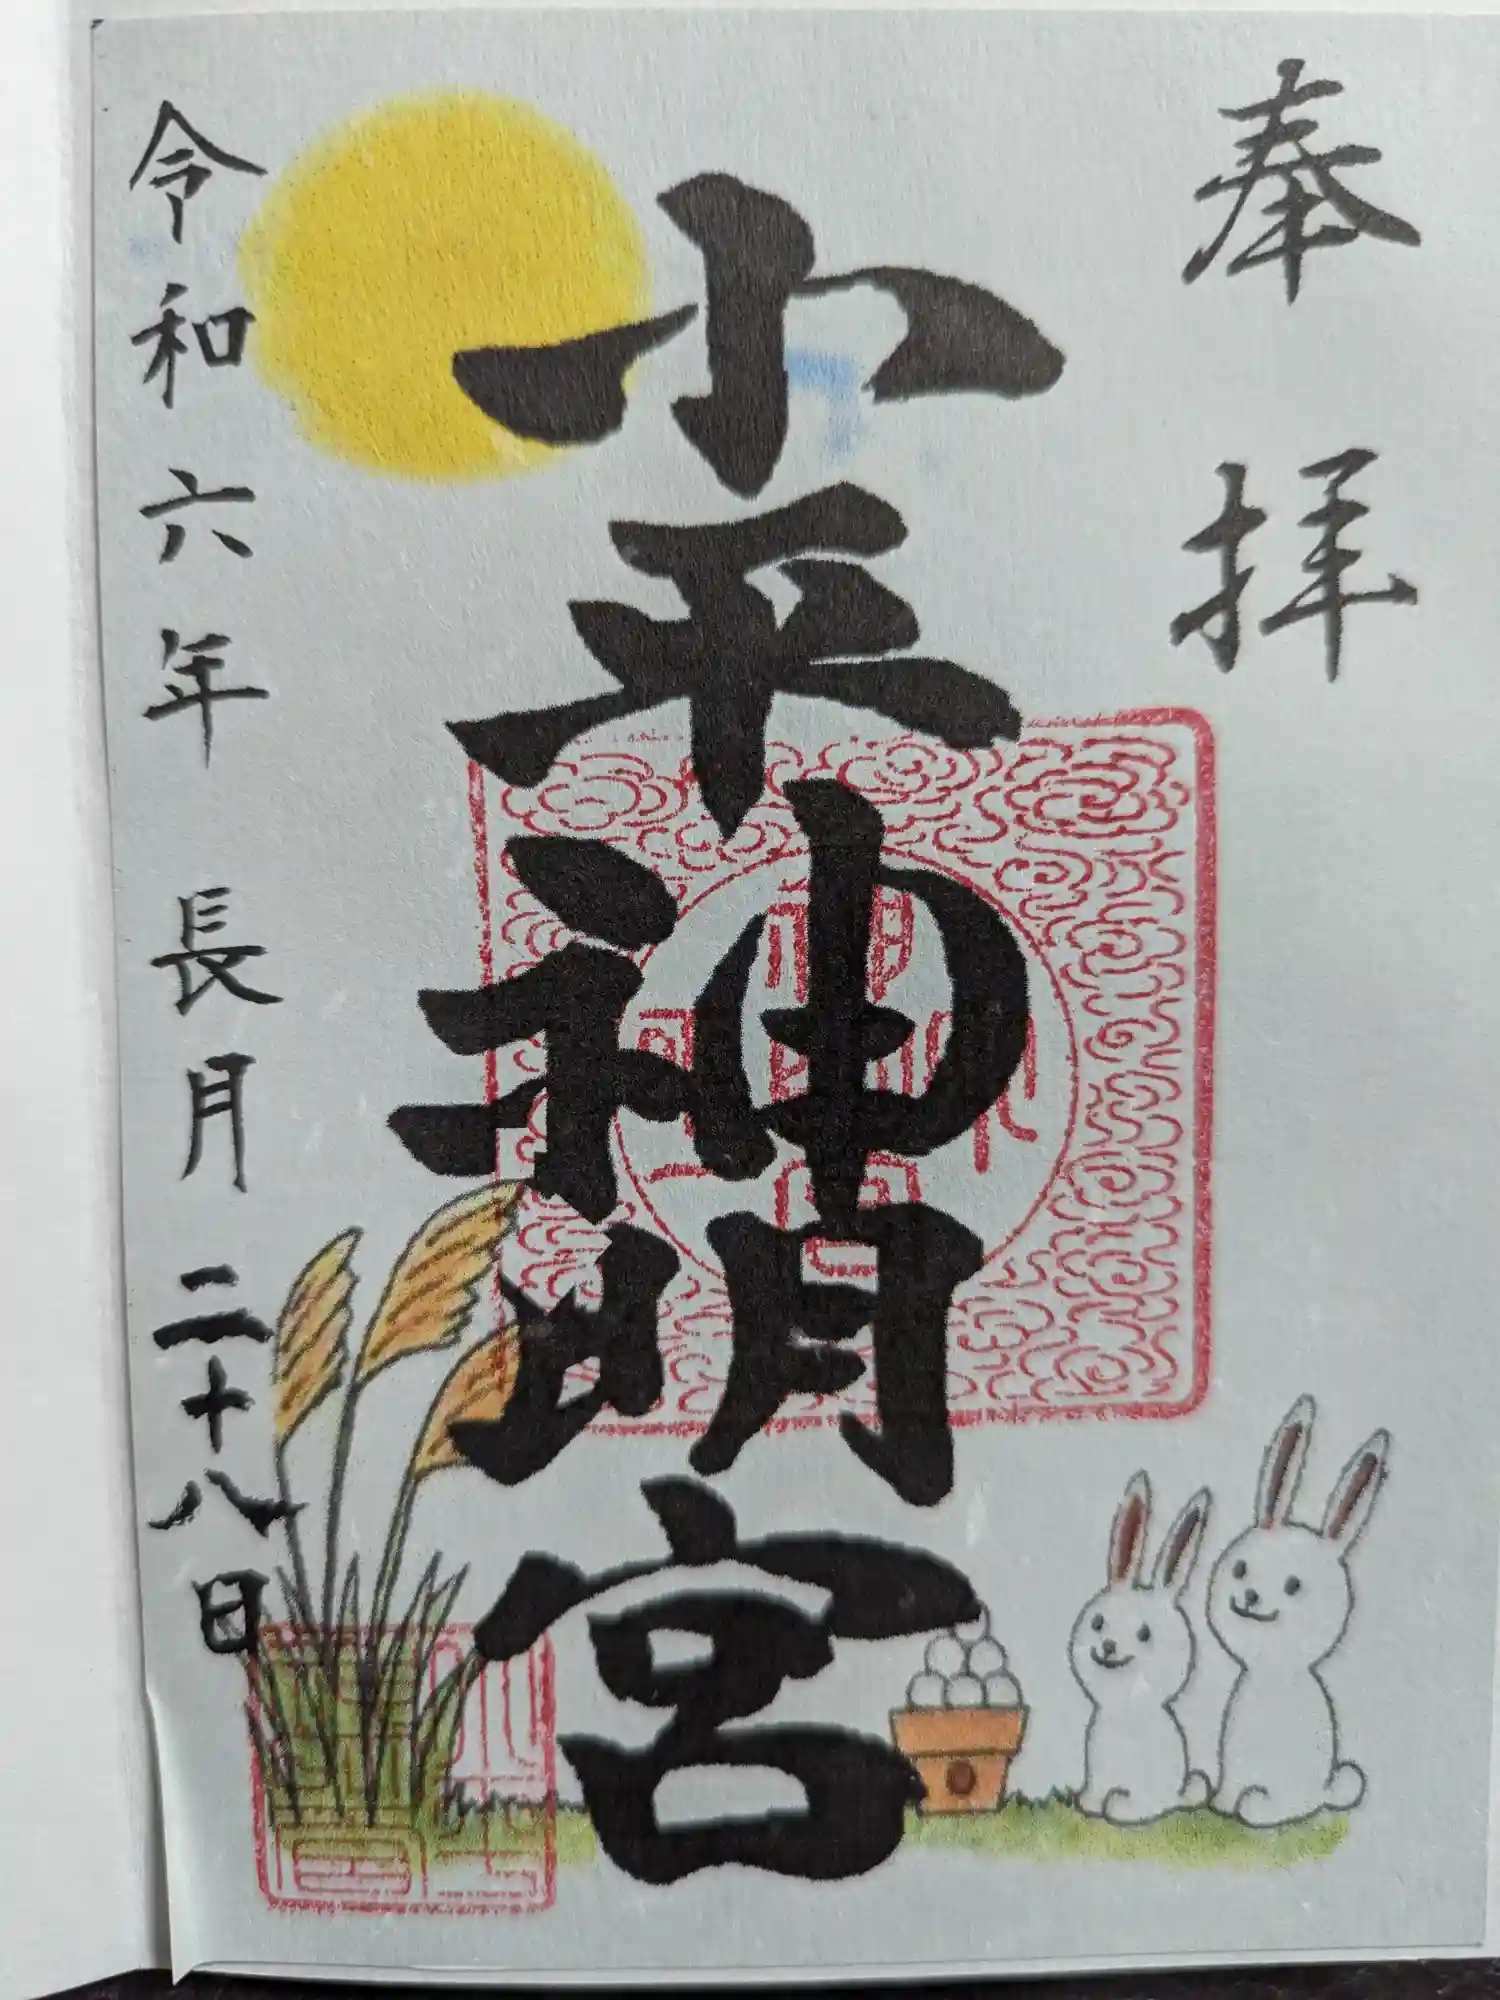 奉拝
小平神明宮
令和六年長月二十八日